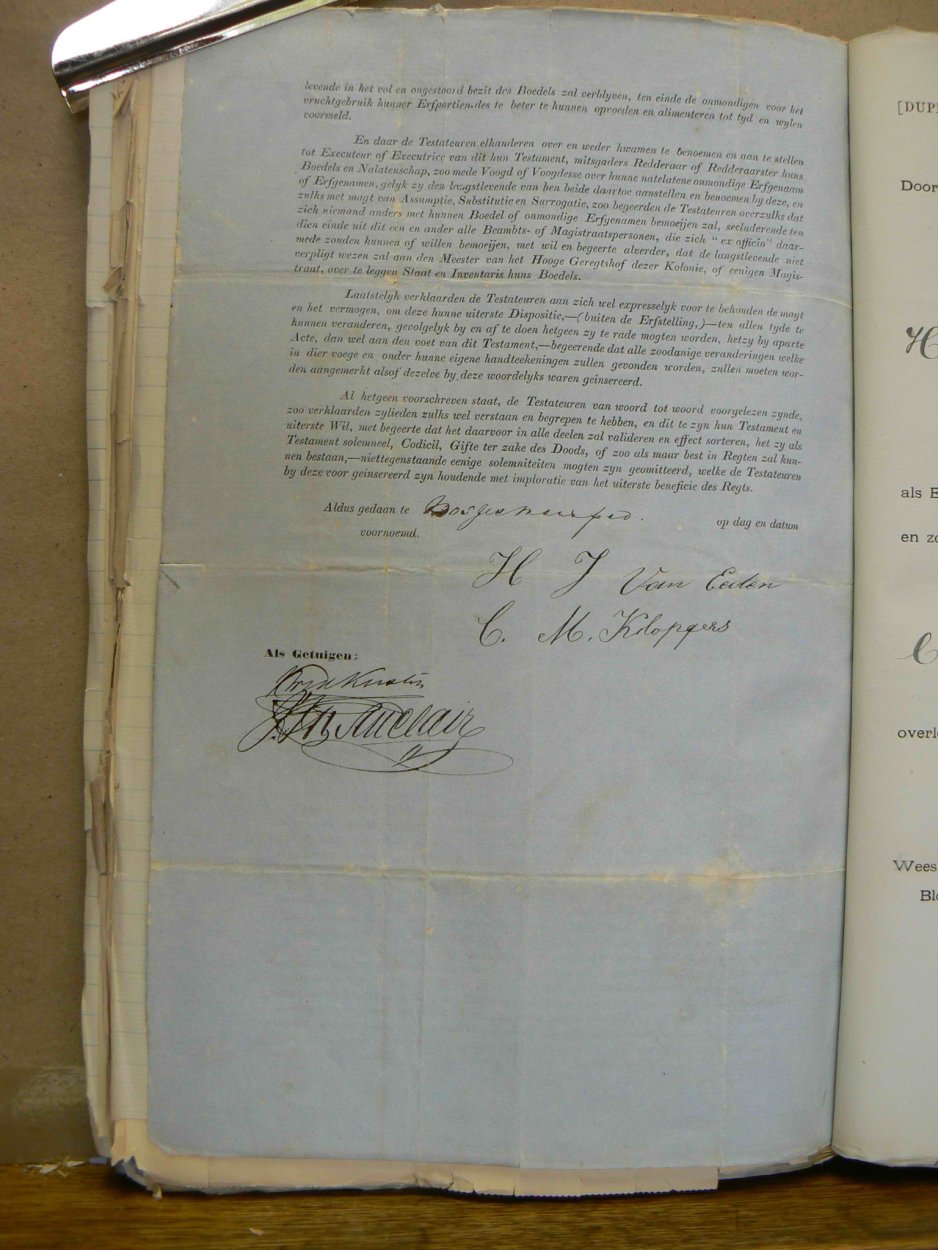 levende in het vol en ongestoord bezit des Boedels zal verblyven, ten einde de onmondigen voor het
vruchtgebruik hunner Erfportien des te beter te kunnen opvoeden en alimenteren tot tyd en wylen
voormeld.
En daar de Testateuren elhanderen over en weder kwamen te benoemen en aan te stellen
tot Executeur of Executrice van dit hun Testament, mitsgaders Redderaar of Redderaarster huns
Boedels en Nalatenschap, zoo mede Voogd of Voogdesse over hunne natelatene onmondige Erfgenaam
of Erfgenamen, gelyk zy den langstlevende van hen beide daartoe aanstellen en benoemen by deze, en
zulks met magt van Assumptie, Substitutie en Surrogatie, zoo begeerden de Testateuren overzulks dat
zich niemand anders met hunnen Boedel of onmondige Erfgenamen bemoeijen zal, secluderende ten
dien einde uit dit een en ander alle Beambts- of Magistraatspersonen, die zich "ex officio" daar-
mede zouden kunnen of willen bemoeijen, met wil en begeerte alverder, dat de langstlevende niet
verpligt wezen zal aan den Meester van het Hooge Geregtshof dezer Kolonie, of eenigen Magis-
traat, over te leggen Staat en Inventaris huns Boedels.
Laatstelyh verhlaarden de Testateuren aan zich wel expresselyk voor te behouden de magt
en het vermogen, om deze hunne uiterste Dispositie,—(buiten de Erfstelling,)—ten allen tyde te
kunnen veranderen, gevolgelyk by en af te doen hetgeen zy te rade mogten worden, hetzy by aparte
Acte, dan wel aan den voet van dit Testament,—begeerende dat alle zoodanige veranderingen welke
in dier voege en onder hunne eigene handteekeningen zullen gevonden worden, zullen moeten wor-
den aangemerkt alsof dezelve by deze woordelyks waren geinsereerd.
Al hetgeen voorschreven staat, de Testateuren van woord tot woord voorgelezen zynde,
zoo verklaarden zylieden zulks wel verstaan en begrepen te hebben, en dit te zyn hun Testament en
uiterste Wil, met begeerte dat het daarvoor in alle deelen zal valideren en effect sorteren, het zy als
Testament solemneel, Codicil, Gifte ter zake des Doods, of zoo als maar best in Regten zal kun-
nen bestaan,—niettegenstaande eenige solemniteiten mogten zyn geomitteerd, welke de Testateuren
by deze voor geinsereerd zyn houdende met imploratie van het uiterste beneficie des Regts.
Aldus gedaan te op dag en datum
voornoemd.
H J Van Eeden
C. M. Klopgers
Als Getuigen:
Sinclair
[DUP
Door
H
als E
en zo
C
overl
Wees
Bl